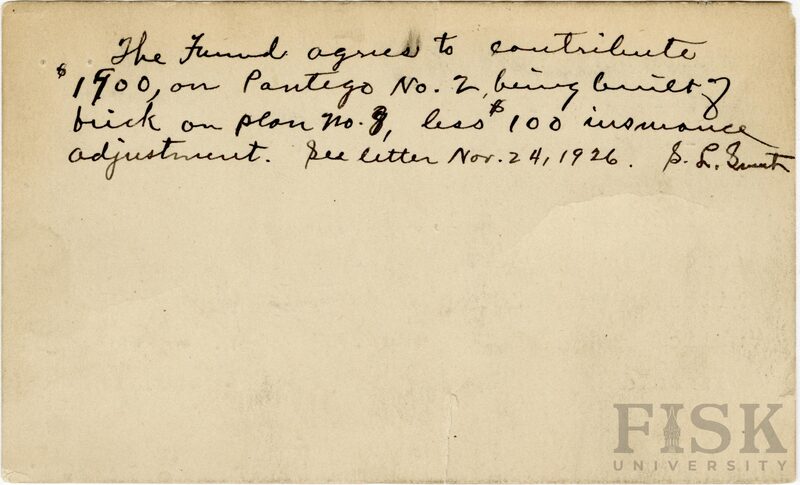 The Fund agrees to contribute
$1900, on Pantego No. 2, being built of
brick on plan no. 8, less $100 insurance
adjustment. See letter Nov. 24, 1926. S. L. Smith
FISK
UNIVERSITY